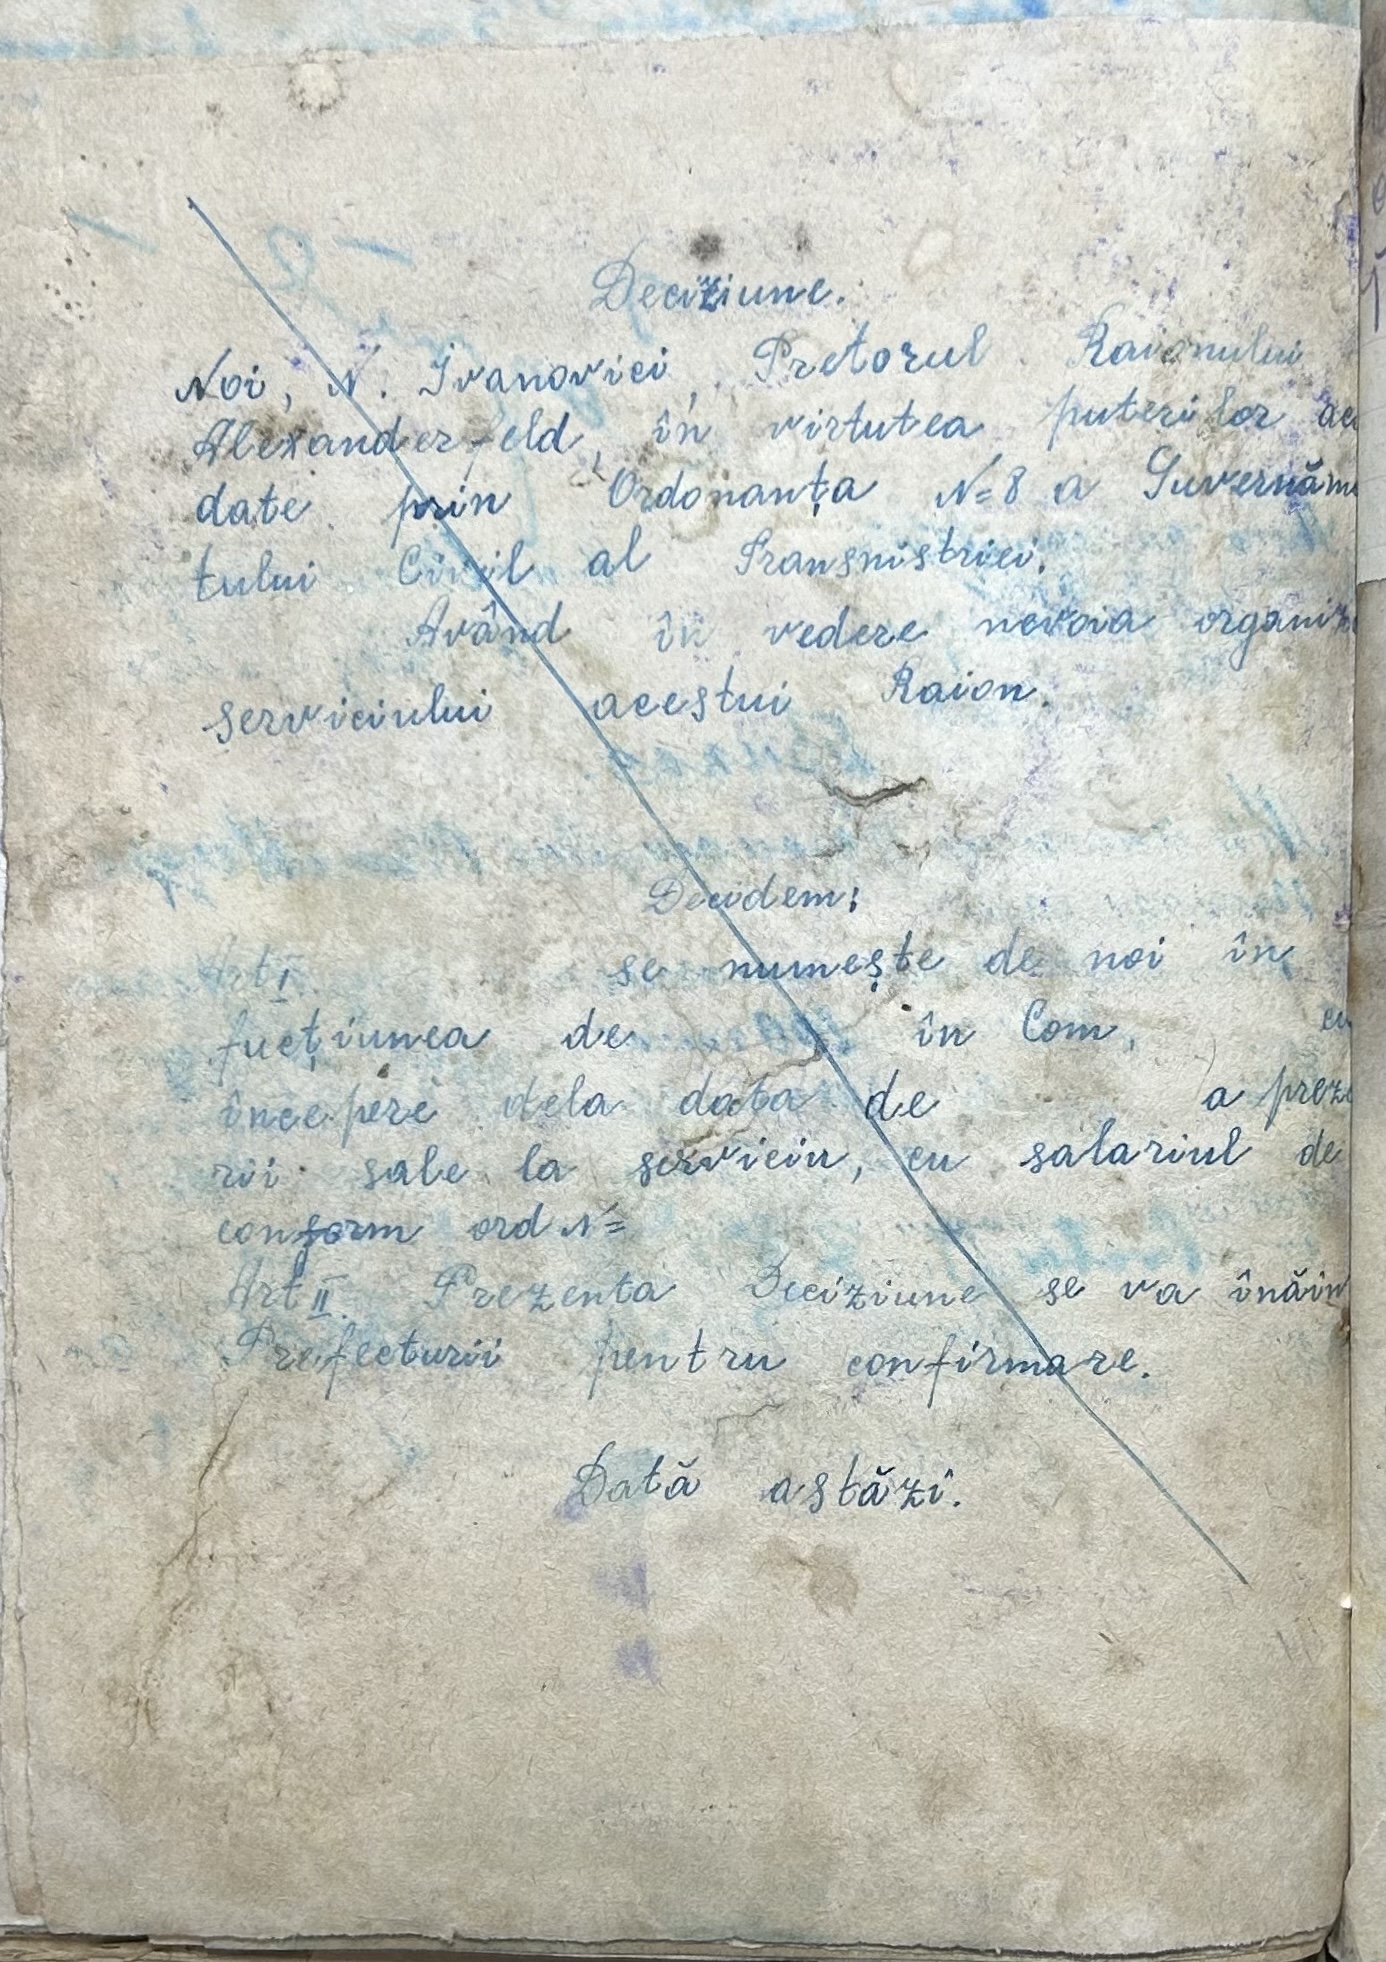 Deciziune.
Noi, N. Ivanovici, Pretorul Raionului
Alexanderfeld, în virtutea puterilor ac
date prin Ordonanța N=8 a Guvernăm
tului Civil al Transnistriei.
Având în vedere nevoia organiz
serviciului acestui Raion.
Decidem:
Art I. se numește de noi în
fucțiunea de în Com, cu
începere dela data de a preze
rii sale la serviciu, cu salariul de
conform ord N=
Art II. Prezenta Deciziune se va înăin
Prefecturii pentru confirmare.
Dată astăzi.